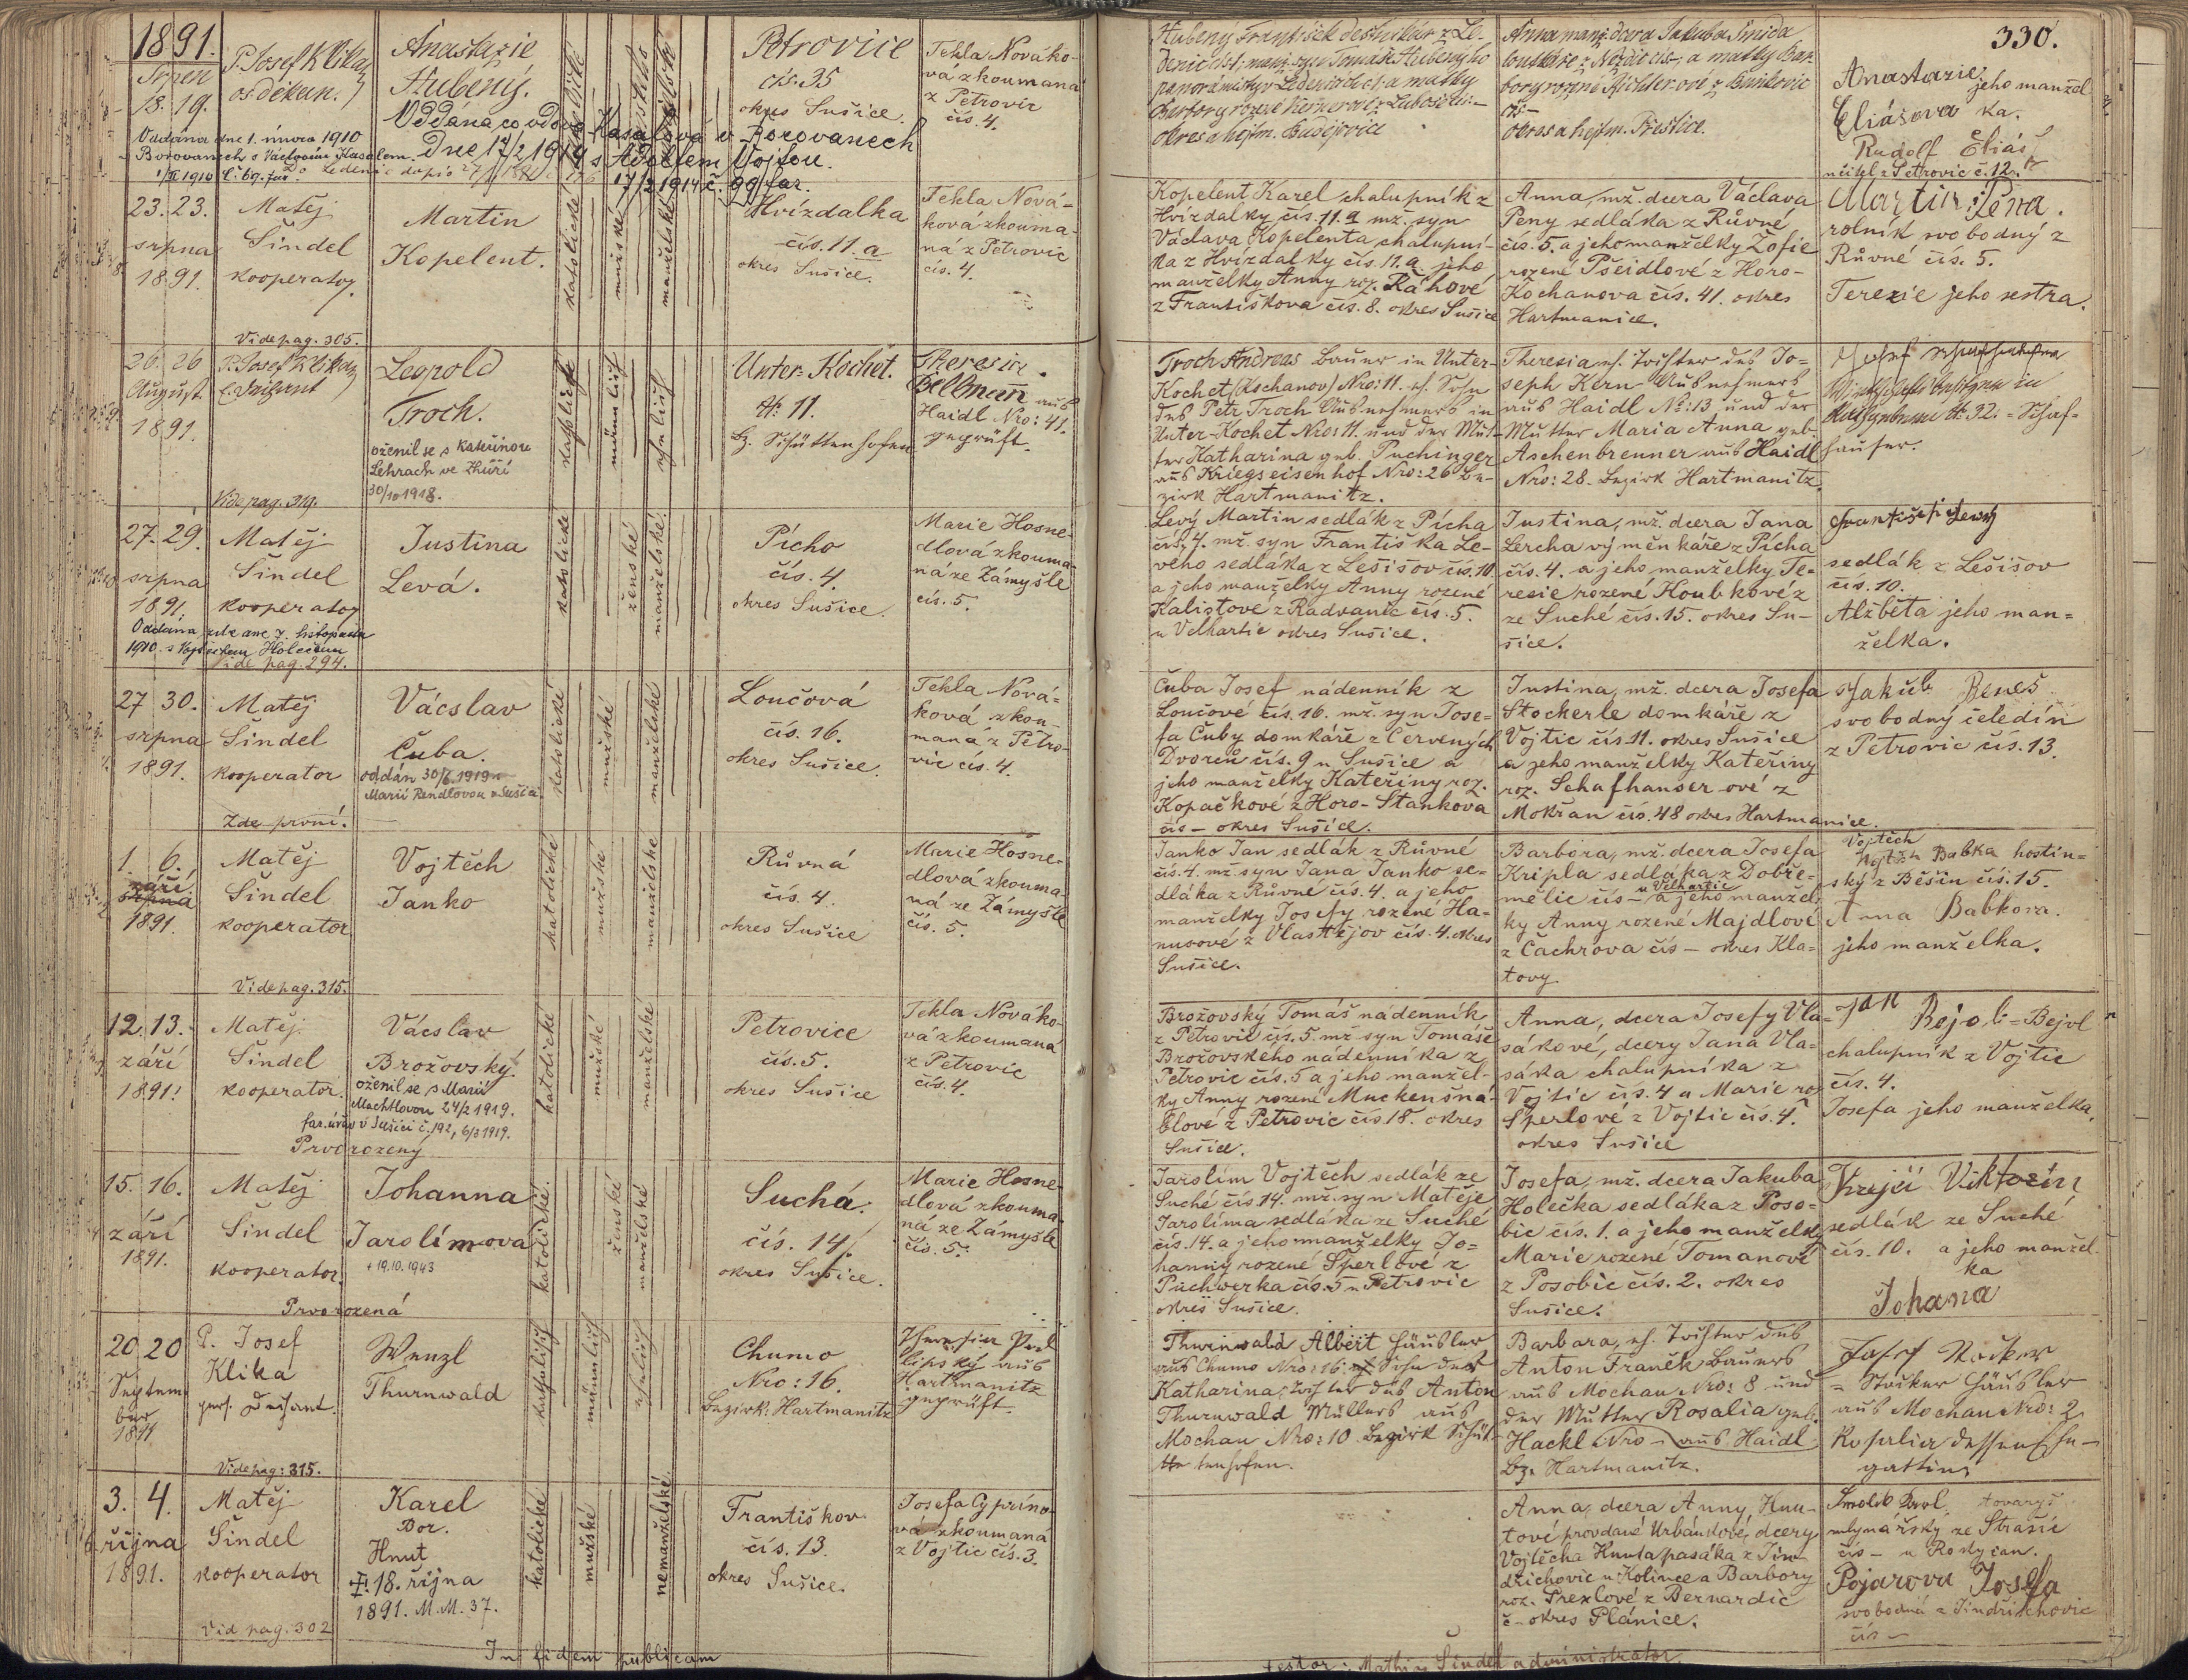 1891.
330.
Srpen
18. 19.
P. Josef Klika
os. děkan.
Anastazie
Hubený.
Petrovice
čís. 35
okres Sušice.
Tekla Nováko-
vá zkoumaná
z Petrovic
čís. 4.
Oddána co vdova Kasalová v Borovanech
Dne 17/2 1919 s Adolfem Vojtou.
17/2 1919 č. 99 far.
Oddána dne 1. února 1910
Borovanech s Václavem Kasalem.
Hubený František
Anna manž. dcera Jakuba Šmída
okres a hejtm. Budějovice
okres a hejtm. Přeštice.
Anastazie jeho manžel-
Eliášova ka.
Rudolf Eliáš
učitel z Petrovic č. 12.
23. 23.
srpna
1891.
Matěj
Šindel
kooperator
Vide pag. 305.
Martin
Kopelent.
katolické
mužské
manželské
Hvízdalka
čís. 11. a
okres Sušice.
Tekla Nová-
ková zkouma-
ná z Petrovic
čís. 4.
Kopelent Karel chalupník z
Hvízdalky čís. 11. a mž. syn
Václava Kopelenta chalupní-
ka z Hvízdalky čís. 11. a jeho
manželky Anny roz. Ráhové
z Františkova čís. 8. okres Sušice
Anna, mž. dcera Václava
Peny sedláka z Růvné
čís. 5. a jeho manželky Žofie
rozené Pšeidlové z Horo-
Kochanova čís. 41. okres
Hartmanice.
Martin Pena.
rolník svobodný z
Růvné čís. 5.
Terezie jeho sestra.
26. 26
August
1891.
P. Josef Klika
Vide pag. 319.
Leopold
Troch.
oženil se s Kateřinou
Lehrach ve Zhůří
30/10 1918.
männlich
ehelich
Unter-Kochet.
N: 11.
Bz. Schüttenhofen
Theresia
Bellman aus
Haidl Nro: 41.
geprüft.
Troch Andreas Bauer in Unter-
Kochet (Kochanov) Nro: 11. eh. Sohn
des Petr Troch Ausnehmers in
Unter-Kochet Nro: 11. und der Mut-
ter Katharina geb. Puchinger
aus Kriegseisenhof Nro: 26 Be-
zirk Hartmanitz.
Theresia eh. Tochter des Jo-
seph Kern Ausnehmers
aus Haidl No: 13 und der
Mutter Maria Anna geb.
Aschenbrenner aus Haidl
Nro: 28. Bezirk Hartmanitz.
27. 29.
srpna
1891.
Matěj
Šindel
kooperator
Oddána zde dne 7. listopadu
1910. s Vojtěchem Holečkem
Vide pag. 294.
Justina
Levá.
katolické
ženské
manželské
Pícho
čís. 4.
okres Sušice.
Marie Hosne-
dlová zkouma-
ná ze Zámyšle
čís. 5.
Levý Martin sedlák z Pícha
čís. 4. mž. syn Františka Le-
vého sedláka z Lešišov čís. 10
a jeho manželky Anny rozené
Kalistove z Radvanic čís. 5.
u Velhartic okres Sušice.
Justina, mž. dcera Jana
Lercha výměnkáře z Pícha
čís. 4. a jeho manželky Te-
resie rozené Houbkové z
ze Suché čís. 15. okres Su-
šice.
František Levý
sedlák z Lešišov
čís. 10.
Alžběta jeho man-
želka.
27 30.
srpna
1891.
Matěj
Šindel
kooperator
Zde první.
Vácslav
Čuba.
oddán 30/6. 1919
Marií Rendlovou v Sušici.
katolické
mužské
manželské
Loučová
čís. 16.
okres Sušice.
Tekla Nová-
ková zkou-
maná z Petro-
vic čís. 4.
Čuba Josef nádenník z
Loučové čís. 16. mž. syn Jose-
fa Čuby domkáře z Červených
Dvorců čís. 9 u Sušice a
jeho manželky Kateřiny roz.
Kopačkové z Horo-Stankova
čís – okres Sušice.
Justina, mž. dcera Josefa
Stockerle domkáře z
Vojtic čís. 11. okres Sušice
a jeho manželky Kateřiny
roz. Schafhauserové z
Mokřan čís. 48 okres Hartmanice.
Jakub Beneš
svobodný čeledín
z Petrovic čís. 13.
1. 6.
září
srpna
1891.
Matěj
Šindel
kooperator
Vide pag. 315.
Vojtěch
Janko
katolické
mužské
manželské
Růvná
čís. 4.
okres Sušice
Marie Hosne-
dlová zkouma-
ná ze Zámyšle
čís. 5.
Janko Jan sedlák z Růvné
čís. 4. mž. syn Jana Janko se-
dláka z Růvné čís. 4. a jeho
manželky Josefy rozené Ha-
nusové z Vlastějov čís. 4. okres
Sušice.
Barbora, mž. dcera Josefa
Kripla sedláka z Dobře-
mělic čís – u Velhartic a jeho manžel-
ky Anny rozené Majdlové
z Čachrova čís – okres Kla-
tovy.
Vojtěch
Babka hostin-
ský z Běšin čís. 15.
Anna Babkova.
jeho manželka.
12. 13.
září
1891.
Matěj
Šindel
kooperator.
Vácslav
Brožovský.
oženil se s Marií
Machtlovou 24/2 1919.
far. úřad v Sušici č. 192, 6/3 1919.
Prvorozený
katolické
mužské
manželské
Petrovice
čís. 5.
okres Sušice
Tekla Nováko-
vá zkoumaná
z Petrovic
čís. 4.
Brožovský Tomáš nádenník
z Petrovic čís. 5. mž syn Tomáše
Brožovského nádenníka z
Petrovic čís. 5 a jeho manžel-
ky Anny rozené Muckenšná-
blové z Petrovic čís. 18. okres
Sušice.
Anna, dcera Josefy Vla-
sákové, dcery Jana Vla-
sáka chalupníka z
Vojtic čís. 4 a Marie roz
Šperlové z Vojtic čís. 4.
okres Sušice
Jan Bejol = Bejvl
chalupník z Vojtic
čís. 4.
Josefa jeho manželka.
15. 16.
září
1891.
Matěj
Šindel
kooperator.
Prvorozená
Johanna
Jarolímova
+ 19.10.1943
katolické
ženské
manželské
Suchá.
čís. 14.
okres Sušice.
Marie Hosne-
dlová zkouma-
ná ze Zámyšle
čís. 5.
Jarolím Vojtěch sedlák ze
Suché čís 14. mž. syn Matěje
Jarolíma sedláka ze Suché
čís. 14. a jeho manželky Jo-
hanny rozené Šperlové z
Puchwerka čís. 5 u Petrovic
okres Sušice.
Josefa, mž. dcera Jakuba
Holečka sedláka z Poso-
bic čís. 1. a jeho manželky
Marie rozené Tomanové
z Posobic čís. 2. okres
Sušice.
Krejčí Viktorin
sedlák ze Suché
čís. 10. a jeho manžel-
ka
Johana
20 20
Septem
ber
1891
P. Josef
Klika
pers. Dechant.
Vide pag: 315.
Wenzl
Thurnwald
katholisch
männlich
ehelich
Chumo
Nro: 16.
Bezirk: Hartmanitz
Theresia Pod-
lipský aus
Hartmanitz
geprüft.
Thurnwald Albert Häusler
aus Chumo Nro: 16. Sohn der
Katharina, Tochter des Anton
Thurnwald Müllers aus
Mochau Nro: 10 Bezirk Schüt-
tenhofen.
Barbara, eh. Tochter des
Anton Franěk Bauers
aus Mochau Nro: 8 und
der Mutter Rosalia geb.
Hackl Nro – aus Haidl
Bz. Hartmanitz.
Josef Stocker
= Stocker Häusler
aus Mochau Nro: 2
Rosalia dessen Ehe-
gattin
3. 4.
října
1891.
Matěj
Šindel
kooperator
Vid pag. 302
Karel
Bor.
Hnut
+ 18. října
1891. M.M. 37.
katolické
mužské
nemanželské
Františkov
čís. 13.
okres Sušice.
Josefa Cyprino-
vá zkoumaná
z Vojtic čís. 3.
Anna, dcera Anny, Hnu-
tové provdané Urbánkové, dcery
Vojtěcha Hnuta pasáka z Jin-
dřichovic u Kolince a Barbory
roz. Prexlové z Bernardic
č – okres Plánice.
Smolík Karel tovaryš
mlynářský ze Strašic
čís – u Rokycan.
Pojarova Josefa
svobodná z Jindřichovic
čís –
In fidem publicam
testor: Mathias Šindel administrator.